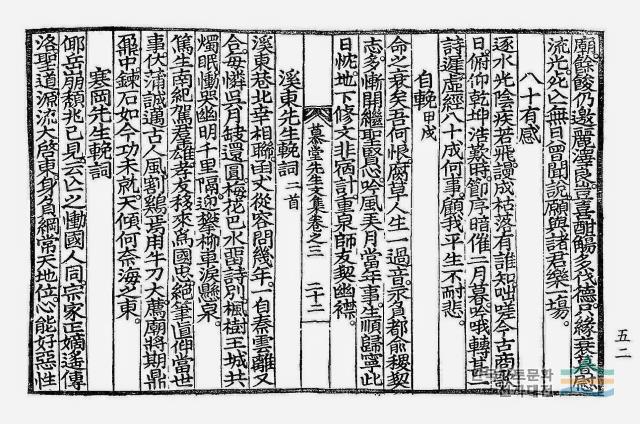 廟餘酸仍邀麗澤良肯喜酣觴多伐德只緣衰暮慰
流光此亡無日曾聞說願與諸君樂一場
八十有感
逐水光陰疾若飛謾成枯落有誰知咄嗟今古商歌
日俯仰乾坤浩歎時節序暗催二月暮吟哦轉甚一
詩遲虛經八十成何事顧我平生不耐悲
自輓 甲戌
命之衰矣吾何恨腐草人生一過音承負都俞稷契
志多慚開繼聖賢心吟風弄月當年事生順歸寧此
日忱地下修文非病計重泉師友契幽襟
慕堂先生文集卷之三 二十二
溪東先生輓詞 二首
溪東巷北幸相聯函丈從容問幾年一自秦雲離又
合每憐吳月缺還圓梅花巴水留詩別楓樹王城共
燭眠慟哭幽明千里隔迎攀柳車淚懸泉
篤生南紀駕羣雄孝友移來爲國忠絶筆直伸當世
事伏蒲誠邁古人風割鷄焉用牛刀大薦廟將期鼎
鼐中鍊石如今功未就天傾何奈海之東
寒岡先生輓詞
邱岳崩頹兆已見云亡之慟國人同宗家正嫡遙傳
洛聖道源流大啓東身負綱常天地位心能好惡性
五二